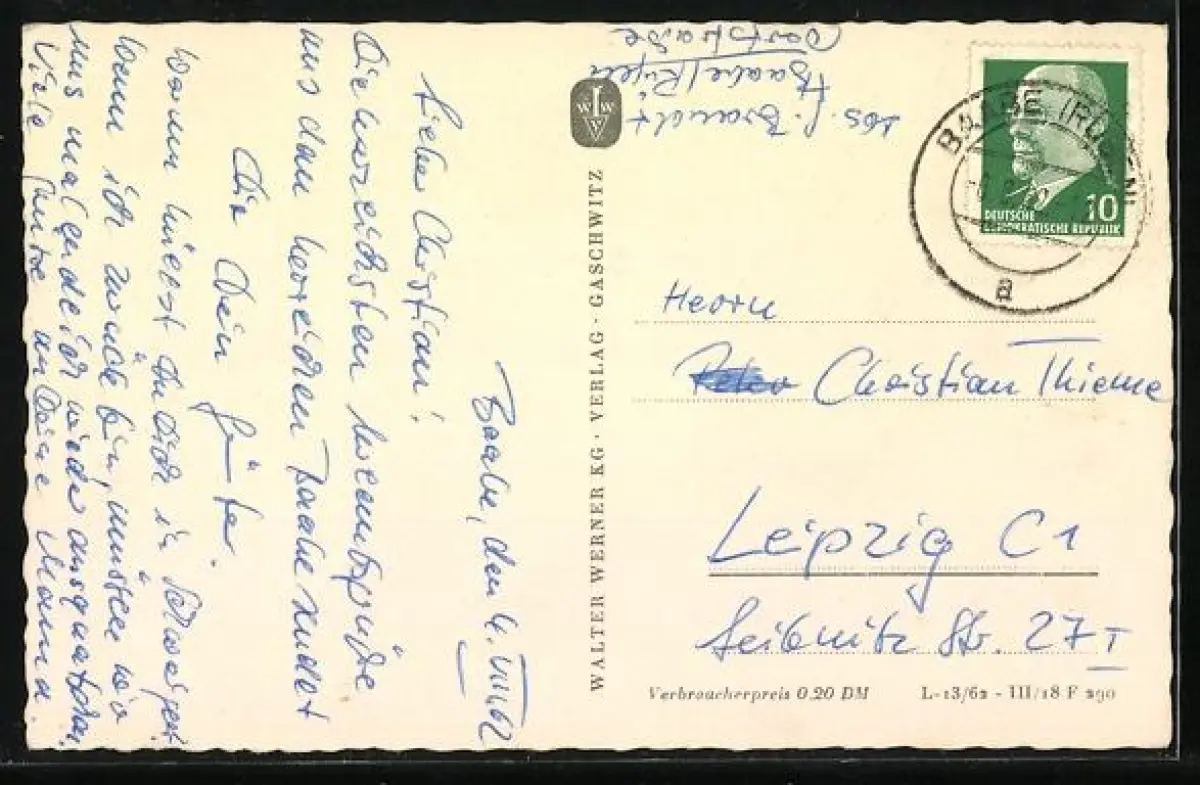 Baabe, den 4. VIII. 62
Lieber Christian!
Die herzlichsten
aus dem herrlichen Baabe sendet
Dir Dein Günter.
Warum hüllst Du Dich in Schweigen?
Wenn ich zurück bin, müssen wir
uns mal
Viele Grüße an Deine Mama.
Abs. G. Brandt
Baabe/Rügen
Dorfstraße
WALTER WERNER KG · VERLAG · GASCHWITZ
BAABE (RÜGEN)
a
10
DEUTSCHE
DEMOKRATISCHE REPUBLIK
Herrn
Christian Thieme
Leipzig C1
Leibnitz Str. 27 I
Verbraucherpreis 0,20 DM L-13/62 - III/18 F 290